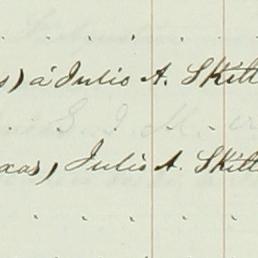 s) á Julio A. Skilt
xas, Julio A. Skilt